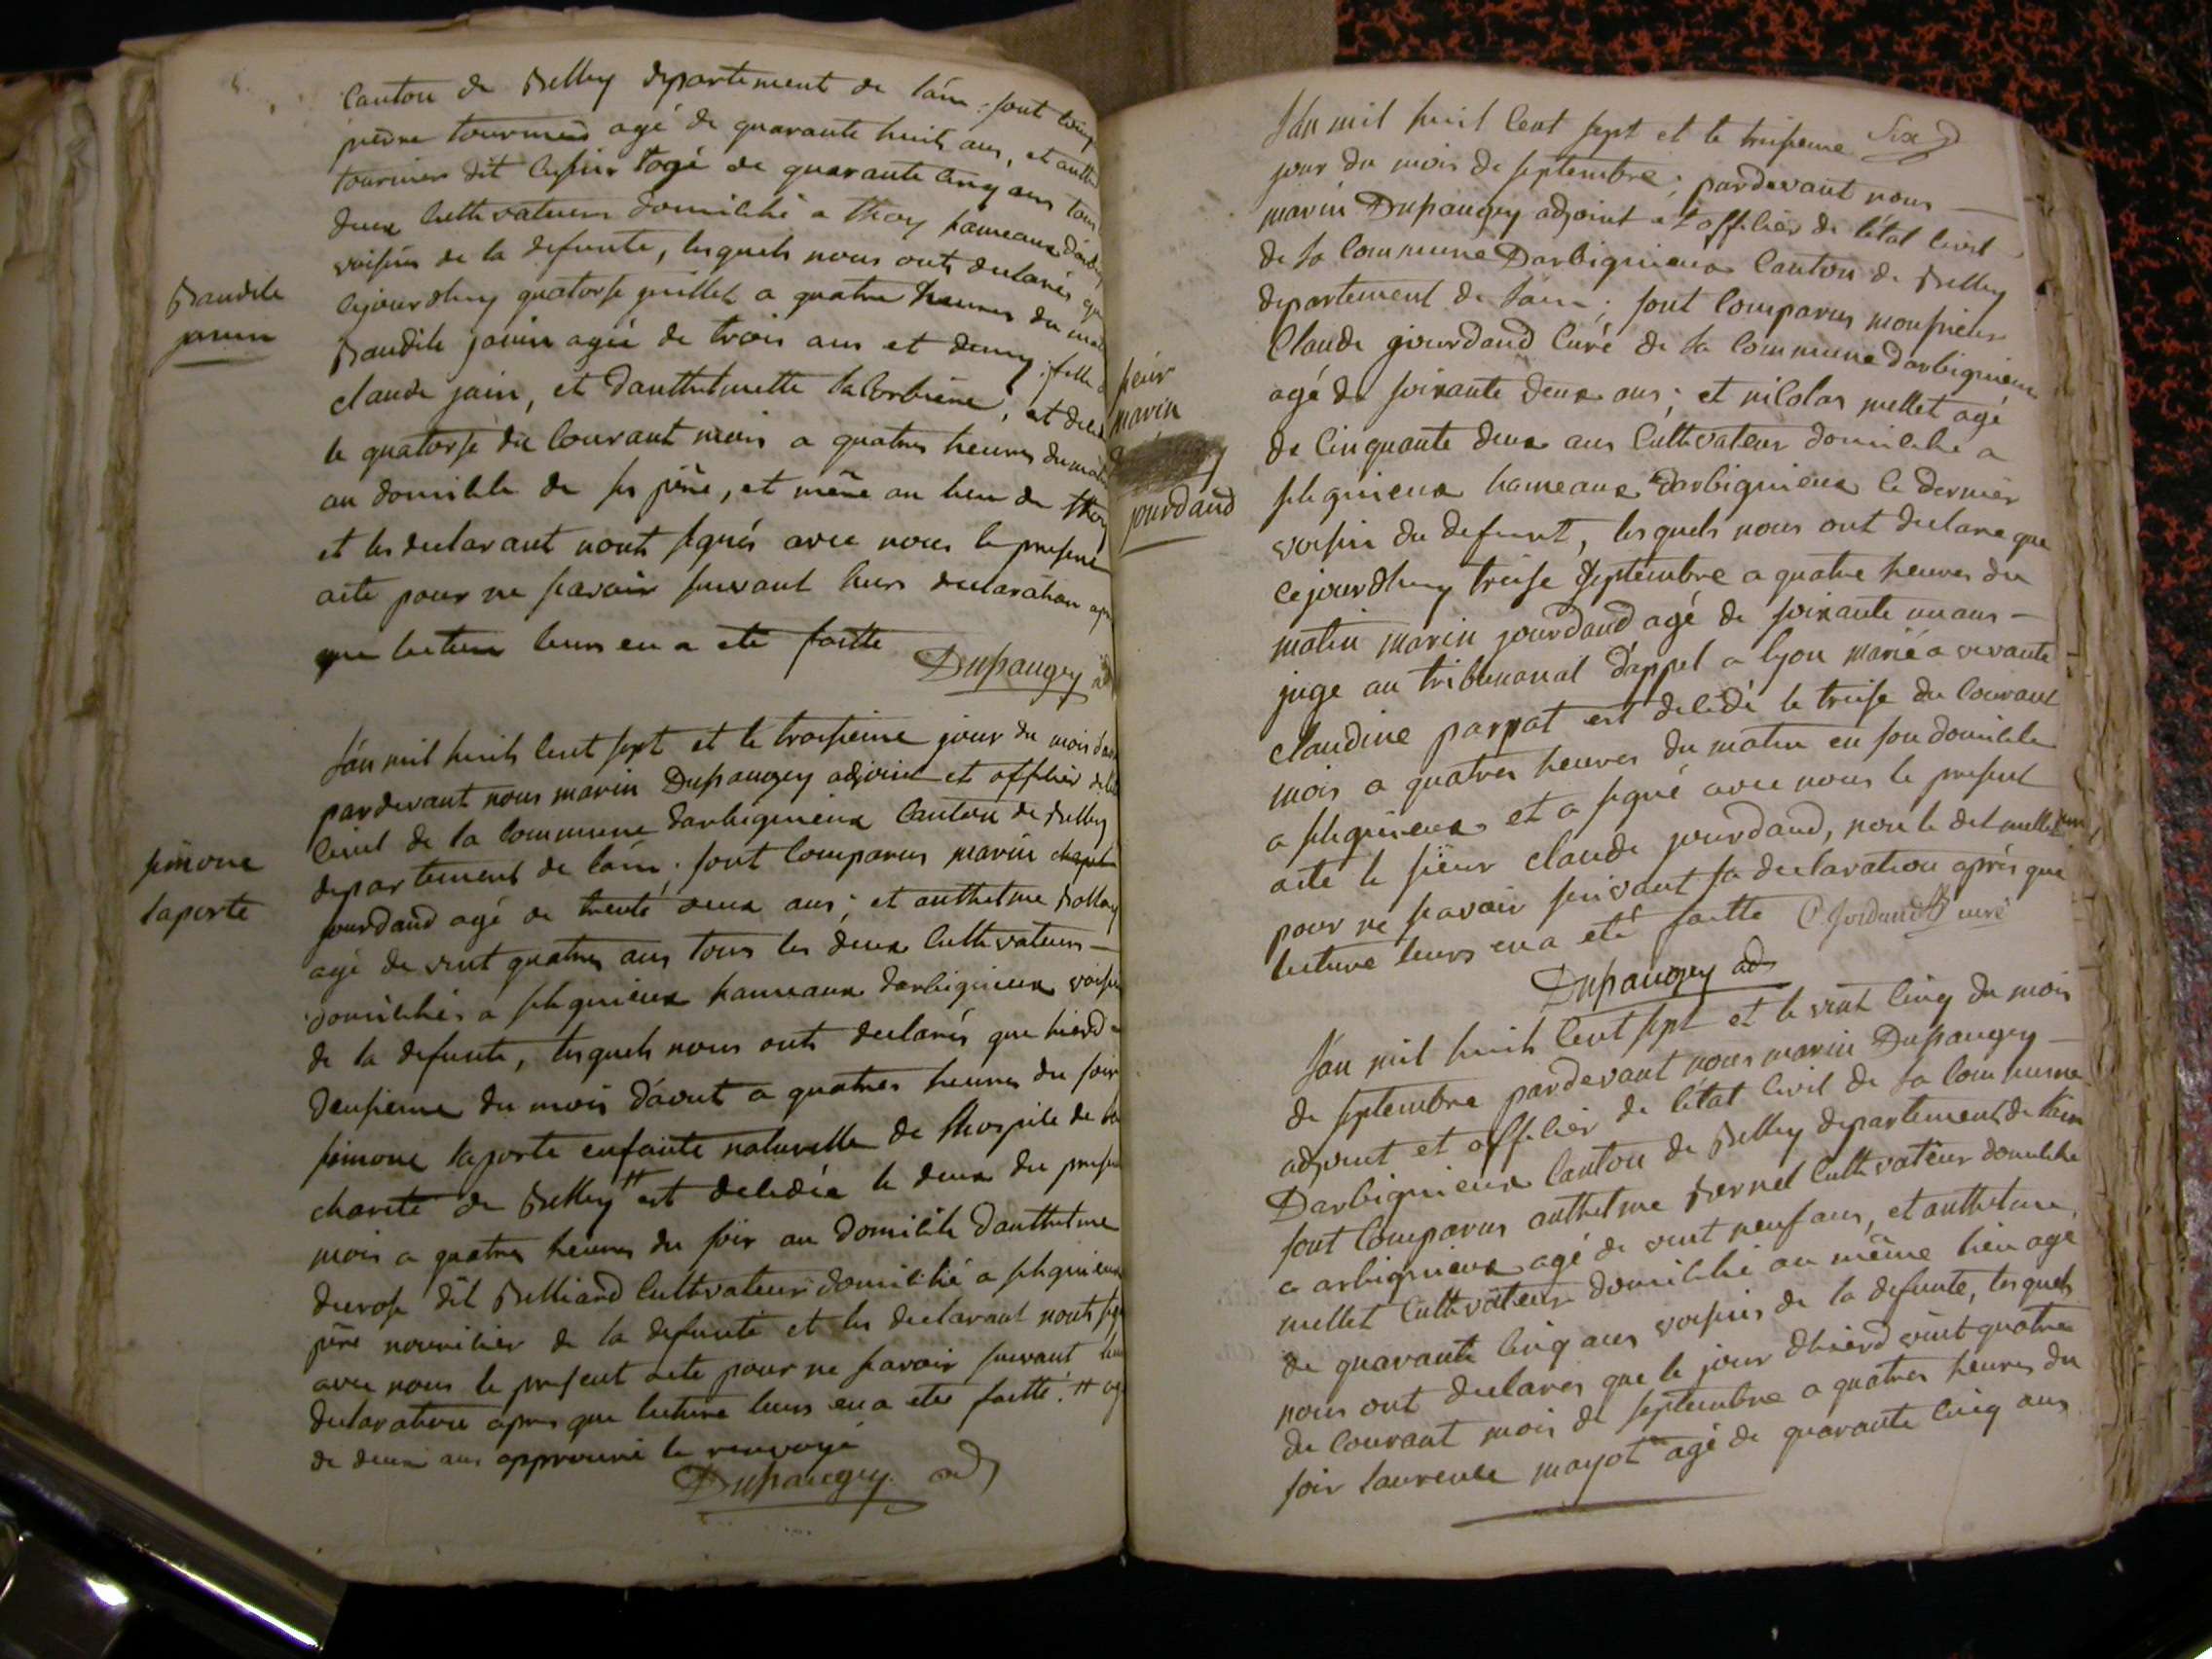 Canton de Belley departement de l'ain. sont
pierre tournier agé de quarante huit ans, et
tournier dit agé de quarante cinq ans tous
deux Cultivateurs domicilié a thoy hameaux
voisins de la defunte, lesquels nous onts declarés que
Cejourdhuy quatorse juillet a quatre heures du
Baudile janin agée de trois ans et demy. fille
claude jain, et d'anthelmette la Corbiere, est
le quatorse du Courant mois a quatres heures du
au domicile de ses père, et mère au lieu de thoy
et les declarant nonts signés avec nous le present
acte pour ne scavoir suivant leurs declaration
que lecture leurs en a eté faitte
Dupaugey
Baudile
janin
L'an mil huits Cent sept et le troisieme jour du mois
pardevant nous marin Dupaugey adjoint et officier
Civil de la Commune darbignieux Canton de Belley
departement de lain. sont Comparus marin
jourdand agé de trente deux ans; et anthelme
agé de vint quatres ans tous les deux Cultivateurs
domiciliés a peluignieux hameaux darbignieux
de la defunte, lesquels nous onts declarés que hierd
deusieme du mois d'aout a quatres heures du soir
simone laporte enfante naturelle de lhospice de
charité de Belley # est decedée le deux du
mois a quatres heures du soir au domicile danthelme
dit Belliard Cultivateur domicilié a
père nouricier de la defunte et les declarant nonts
avec nous le present acte pour ne scavoir suivant
declaration apres que lecture leurs en a eté faitte. #
de deux ans approuvé le renvoyé
Dupaugey adj
simone
laporte
Six
L'an mil huit Cent sept et le treisieme
jour du mois de septembre; pardevant nous
marin Dupaugey adjoint a l'officier de l'état Civil
de la Commune Darbignieux Canton de Belley
departement de lain; sont Comparus monsieur
Claude jourdand Curé de la Commune darbignieux
agé de soixante deux ans; et nicolas mellet agé
de Cinquante deux ans Cultivateur domicilié a
peluignieux hameaux darbignieux le dernier
voisin du defunt, lesquels nous ont declaré que
cejourdhuy treise septembre a quatre heures du
matin marin jourdand agé de soixante un ans
juge au tribunanal d'appel a lyon marié a vivante
claudine parrat est decedé le treise du Courant
mois a quatres heures du matin en son domicile
a peluignieux et a signé avec nous le present
acte le sieur claude jourdand, non le dit mellet
pour ne scavoir suivant sa declaration après que
lecture leurs en a eté faitte C. Jordand curé
Dupaugey adj
sieur
marin
jourdand
L'an mil huits Cent sept et le vint Cinq du mois
de septembre pardevant nous marin Dupaugey
adjoint et officier de l'état Civil de la Commune
Darbignieux Canton de Belley departement de lain
sont Comparus anthelme Bernel Cultivateur domicilié
a arbignieux agé de vint neuf ans, et anthelme
mellet Cultivateur domicilié au même lieu agé
de quarante Cinq ans voisins de la defunte, lesquels
nous ont declarés que le jour dhierd vint quatre
du Courant mois de septembre a quatres heures du
soir laurence mayot agé de quarante Cinq ans